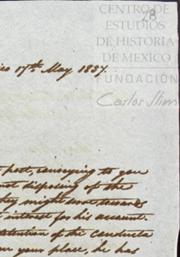 78
CENTRO DE
ESTUDIOS
DE HISTORIA
DE MEXICO
FUNDACIÓN
Carlos Slim
17th May 1837.
post, conveying to you
disposing of the
they might some
interest for his account.
of the conducta
your place, he has